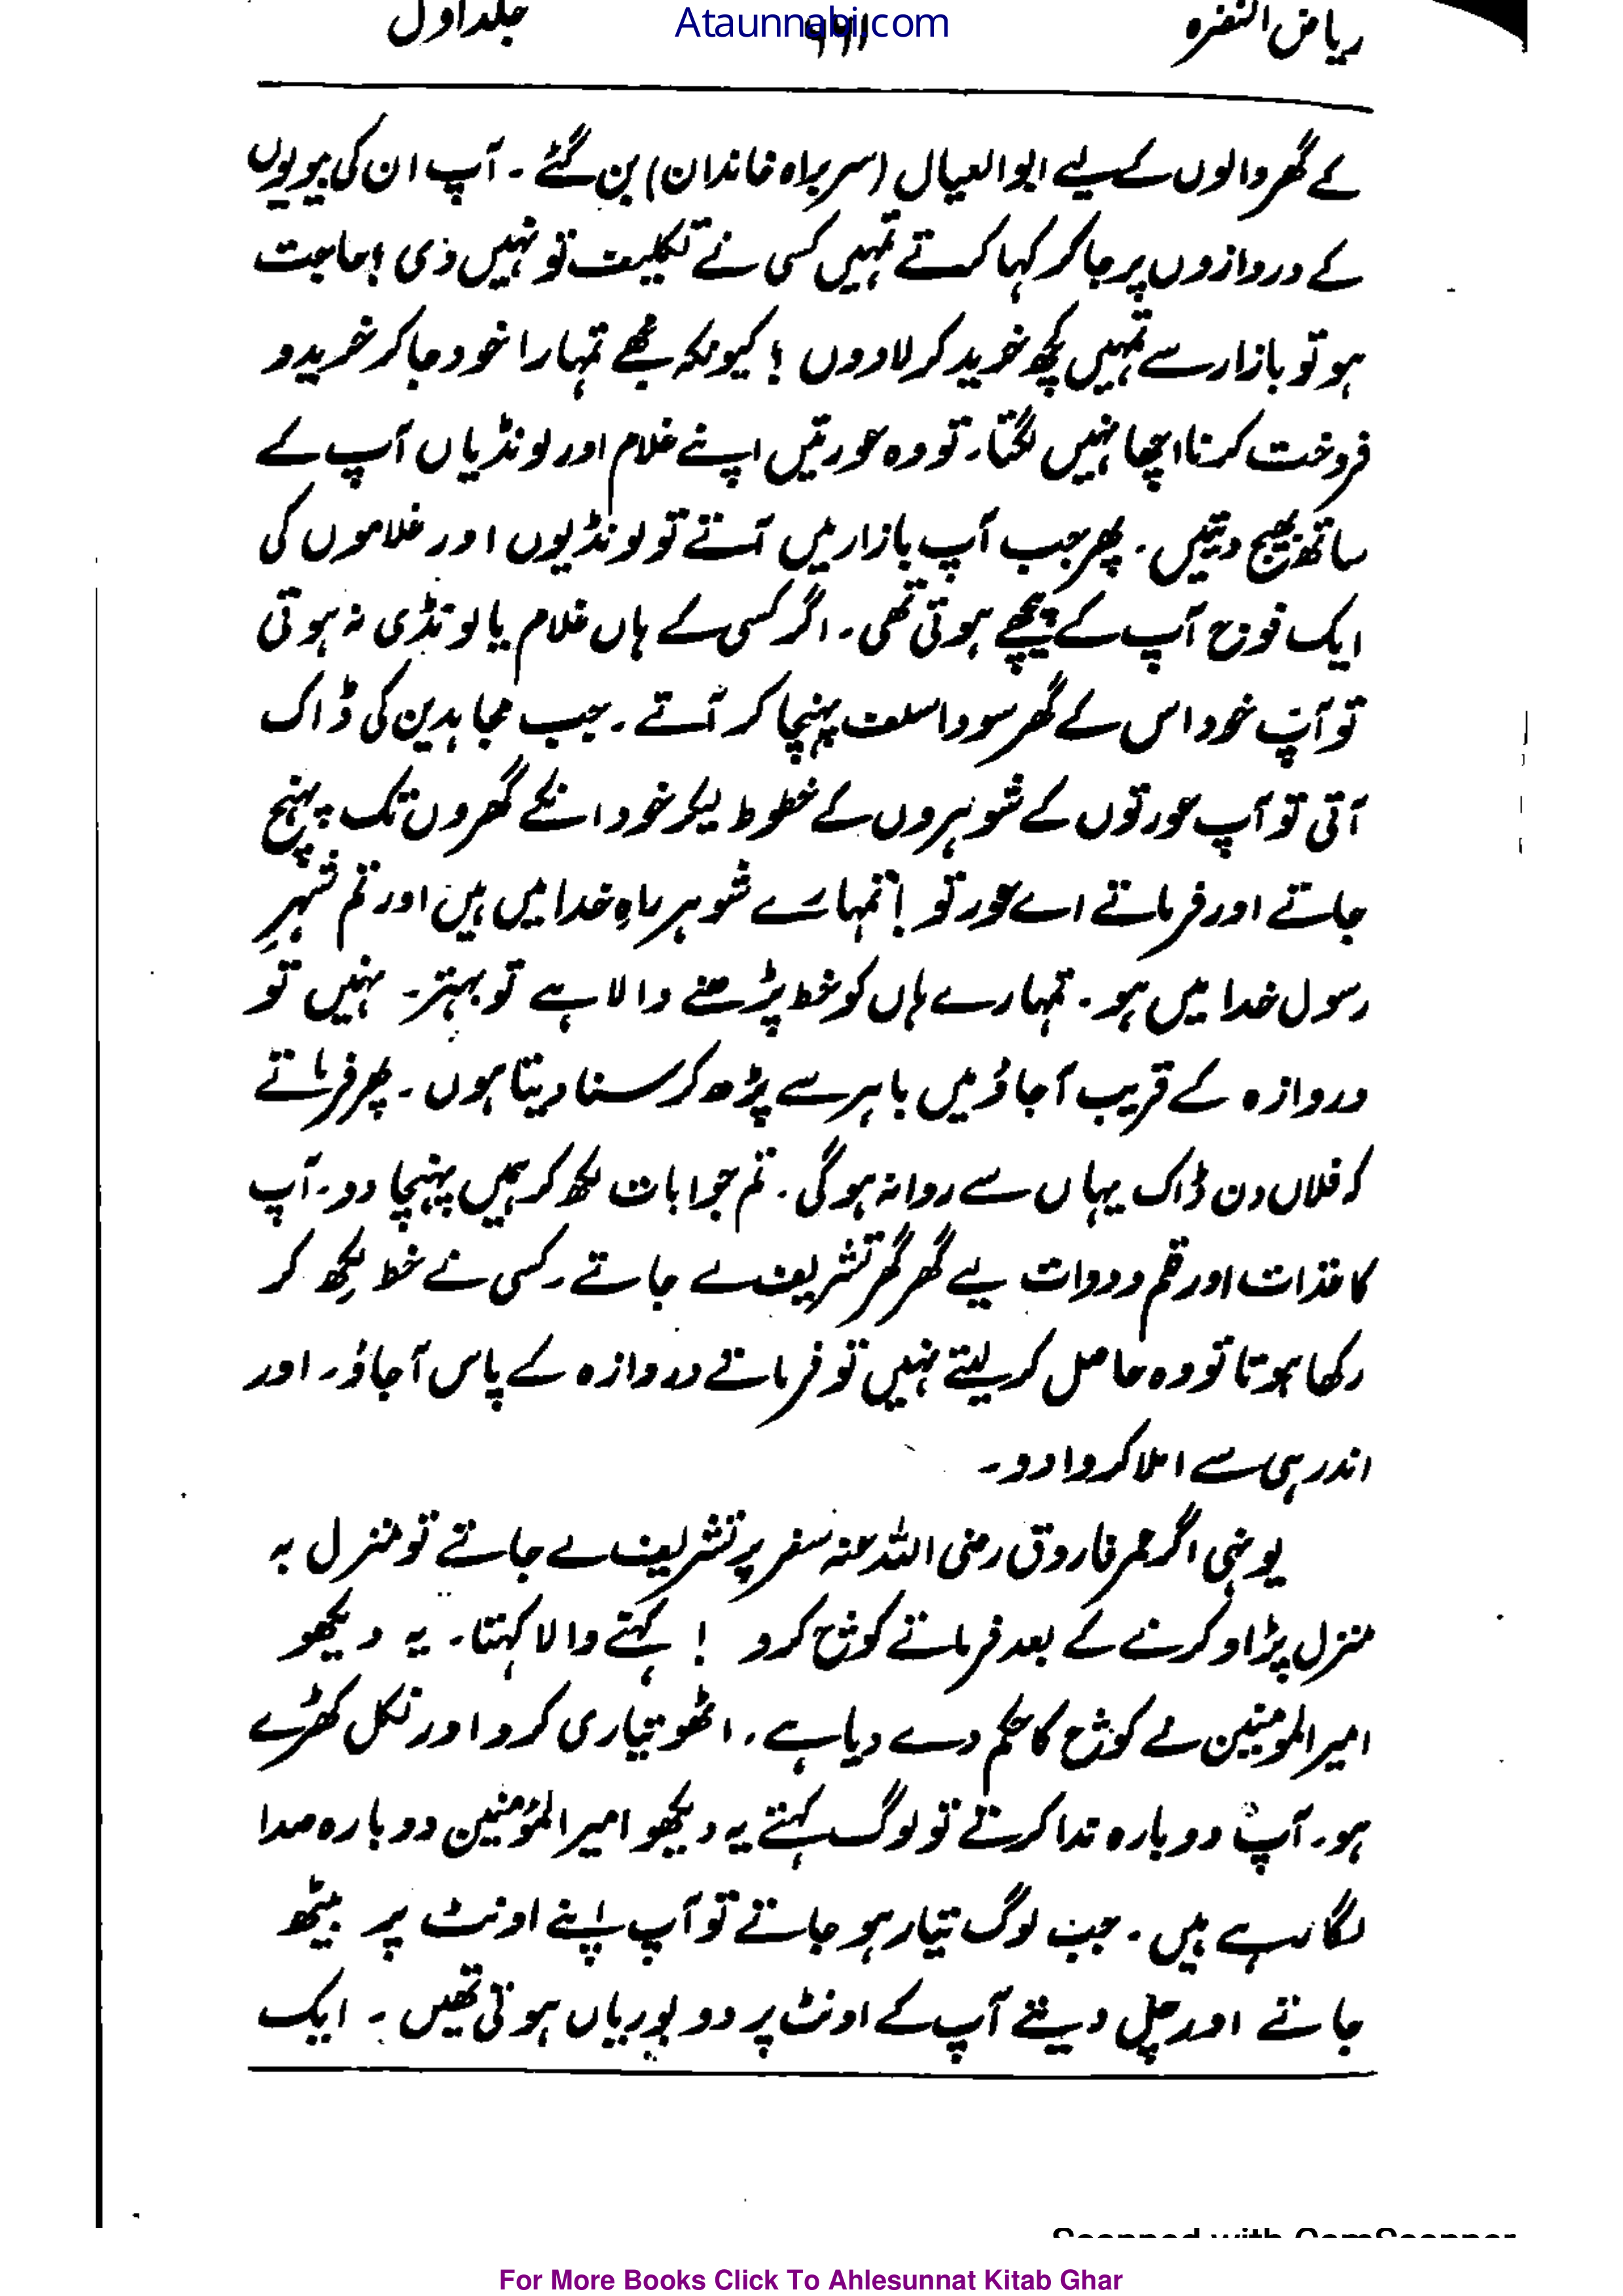 ریاض النضرہ جلد اول
Ataunnabi.com
کے گھر والوں کے لیے ابوالعیال (سربراہ خاندان) بن گئے ۔ آپ ان کی بیویوں
کے دروازوں پر جا کر کہا کرتے تمہیں کسی نے تکلیف تو نہیں دی ؟ حاجت
ہو تو بازار سے تمہیں کچھ خرید کر لا دوں ؟ کیونکہ مجھے تمہارا خود جا کر خرید و
فروخت کرنا اچھا نہیں لگتا۔ تو وہ عورتیں اپنے غلام اور لونڈیاں آپ کے
ساتھ بھیج دیتیں ۔ پھر جب آپ بازار میں آتے تو لونڈیوں اور غلاموں کی
ایک فوج آپ کے پیچھے ہوتی تھی ۔ اگر کسی کے ہاں غلام یا لونڈی نہ ہوتی
تو آپ خود اس کے گھر سودا سلف پہنچا کر آتے ۔ جب مجاہدین کی ڈاک
آتی تو آپ عورتوں کے شوہروں کے خطوط لیکر خود انکے گھروں تک پہنچ
جاتے اور فرماتے اے عورتو ! تمہارے شوہر راہِ خدا میں ہیں اور تم شہرِ
رسول خدا میں ہو ۔ تمہارے ہاں کو خط پڑھنے والا ہے تو بہتر ۔ نہیں تو
دروازہ کے قریب آجاؤ میں باہر سے پڑھ کر سنا دیتا ہوں ۔ پھر فرماتے
کہ فلاں دن ڈاک یہاں سے روانہ ہوگی ۔ تم جوابات لکھ کر ہمیں پہنچا دو ۔ آپ
کاغذات اور قلم و دوات لیے گھر گھر تشریف لے جاتے ۔ کسی نے خط لِکھ کر
رکھا ہوتا تو وہ حاصل کر لیتے نہیں تو فرماتے دروازہ کے پاس آجاؤ ۔ اور
اندر ہی سے املا کروا دو ۔
یونہی اگر عمر فاروق رضی اللہ عنہ سفر پر تشریف لے جاتے تو منزل بہ
منزل پڑاو کرنے کے بعد فرماتے کوچ کرو ! کہنے والا کہتا ۔ یہ دیکھو
امیر المومنین نے کوچ کا حکم دے دیا ہے ، اٹھو تیاری کرو اور نکل کھڑے
ہو ۔ آپ دوبارہ ندا کرتے تو لوگ کہتے یہ دیکھو امیر المؤمنین دوبارہ صدا
لگا رہے ہیں ۔ جب لوگ تیار ہو جاتے تو آپ اپنے اونٹ پر بیٹھ
جاتے اور چل دیتے آپ کے اونٹ پر دو بوریاں ہوتی تھیں ۔ ایک
Scanned with CamScanner
For More Books Click To Ahlesunnat Kitab Ghar